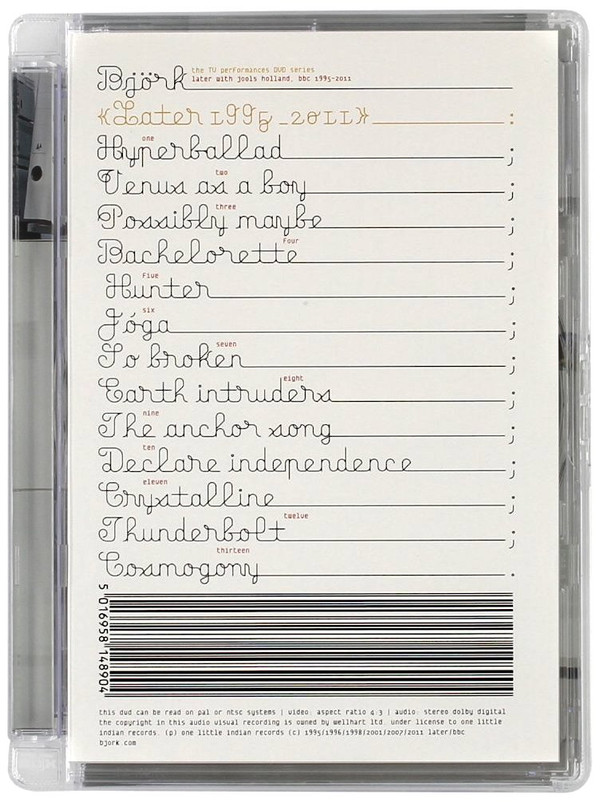 Björk the TV performances DVD series
later with jools holland, bbc 1995-2011
«Later 1995_2011» :
one
Hyperballad ;
two
Venus as a boy ;
three
Possibly maybe ;
Four
Bachelorette ;
Five
Hunter ;
six
Jóga ;
seven
So broken ;
eight
Earth intruders ;
nine
The anchor song ;
ten
Declare independence ;
eleven
Crystalline ;
twelve
Thunderbolt ;
thirteen
Cosmogony .
5 016958 148904
this dvd can be read on pal or ntsc systems | video: aspect ratio 4:3 | audio: stereo dolby digital
the copyright in this audio visual recording is owned by wellhart ltd. under license to one little
indian records. (p) one little indian records (c) 1995/1996/1998/2001/2007/2011 later/bbc
bjork.com